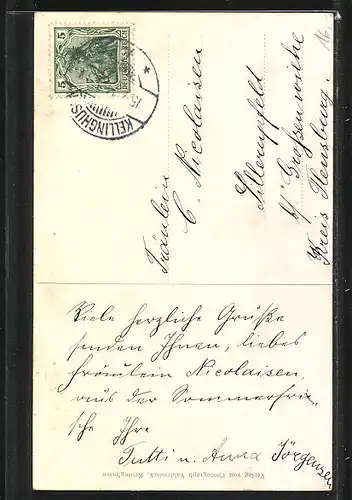 5 5
DEUTSCHES REICH
KELLINGHUS
Fräulein
C. Nicolaisen
b/ Großenwiehe
Kreis Flensburg.
16.
Viele herzliche Grüße
senden Ihnen, liebes
Fräulein Nicolaisen,
aus der Sommerfri-
sche Ihre
Tutti u. Anna Jörgensen
Verlag von Photograph Kellinghusen